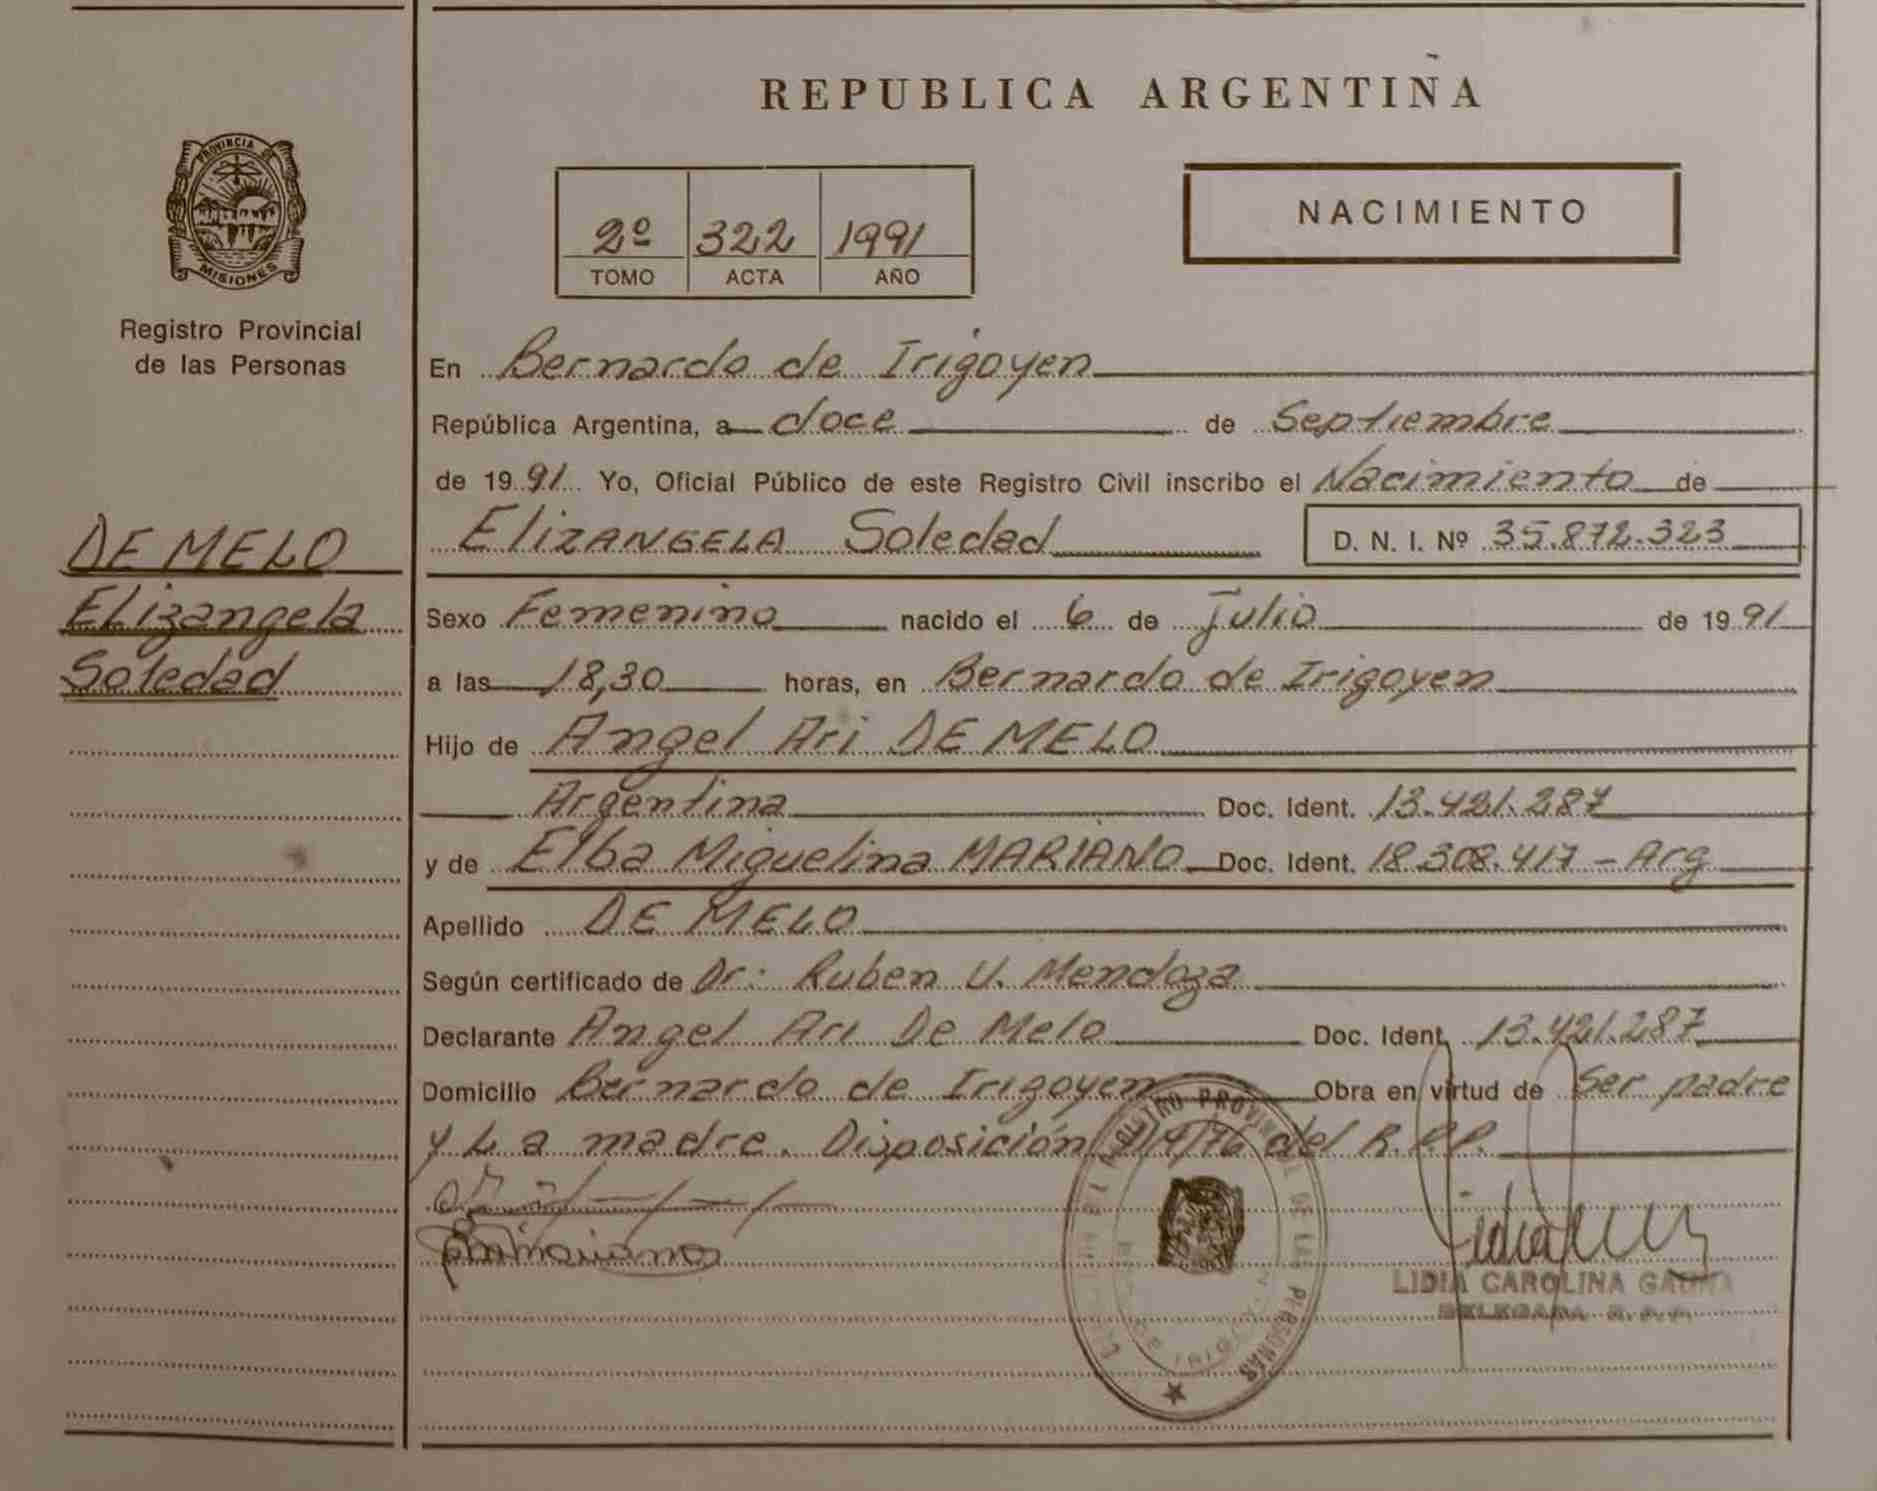 REPUBLICA ARGENTINA
PROVINCIA DE
MISIONES
Registro Provincial
de las Personas
2º 322 1991
TOMO ACTA AÑO
NACIMIENTO
En Bernardo de Irigoyen
República Argentina, a doce de Septiembre
de 1991 Yo, Oficial Público de este Registro Civil inscribo el Nacimiento de
Elizangela Soledad D. N. I. Nº 35.872.323
DE MELO
Elizangela
Soledad
Sexo Femenino nacido el 6 de Julio de 1991
a las 18,30 horas, en Bernardo de Irigoyen
Hijo de Angel Ari DE MELO
Argentina Doc. Ident. 13.421.287
y de Elba Miguelina MARIANO Doc. Ident. 18.308.417 - Arg
Apellido DE MELO
Según certificado de Dr: Ruben U. Mendoza
Declarante Angel Ari De Melo Doc. Ident. 13.421.287
Domicilio Bernardo de Irigoyen Obra en virtud de Ser padre
y La madre. Disposición /76 del R.P.P.
LIDIA CAROLINA
DELEGADA R.P.P.
DE LAS PERSONAS